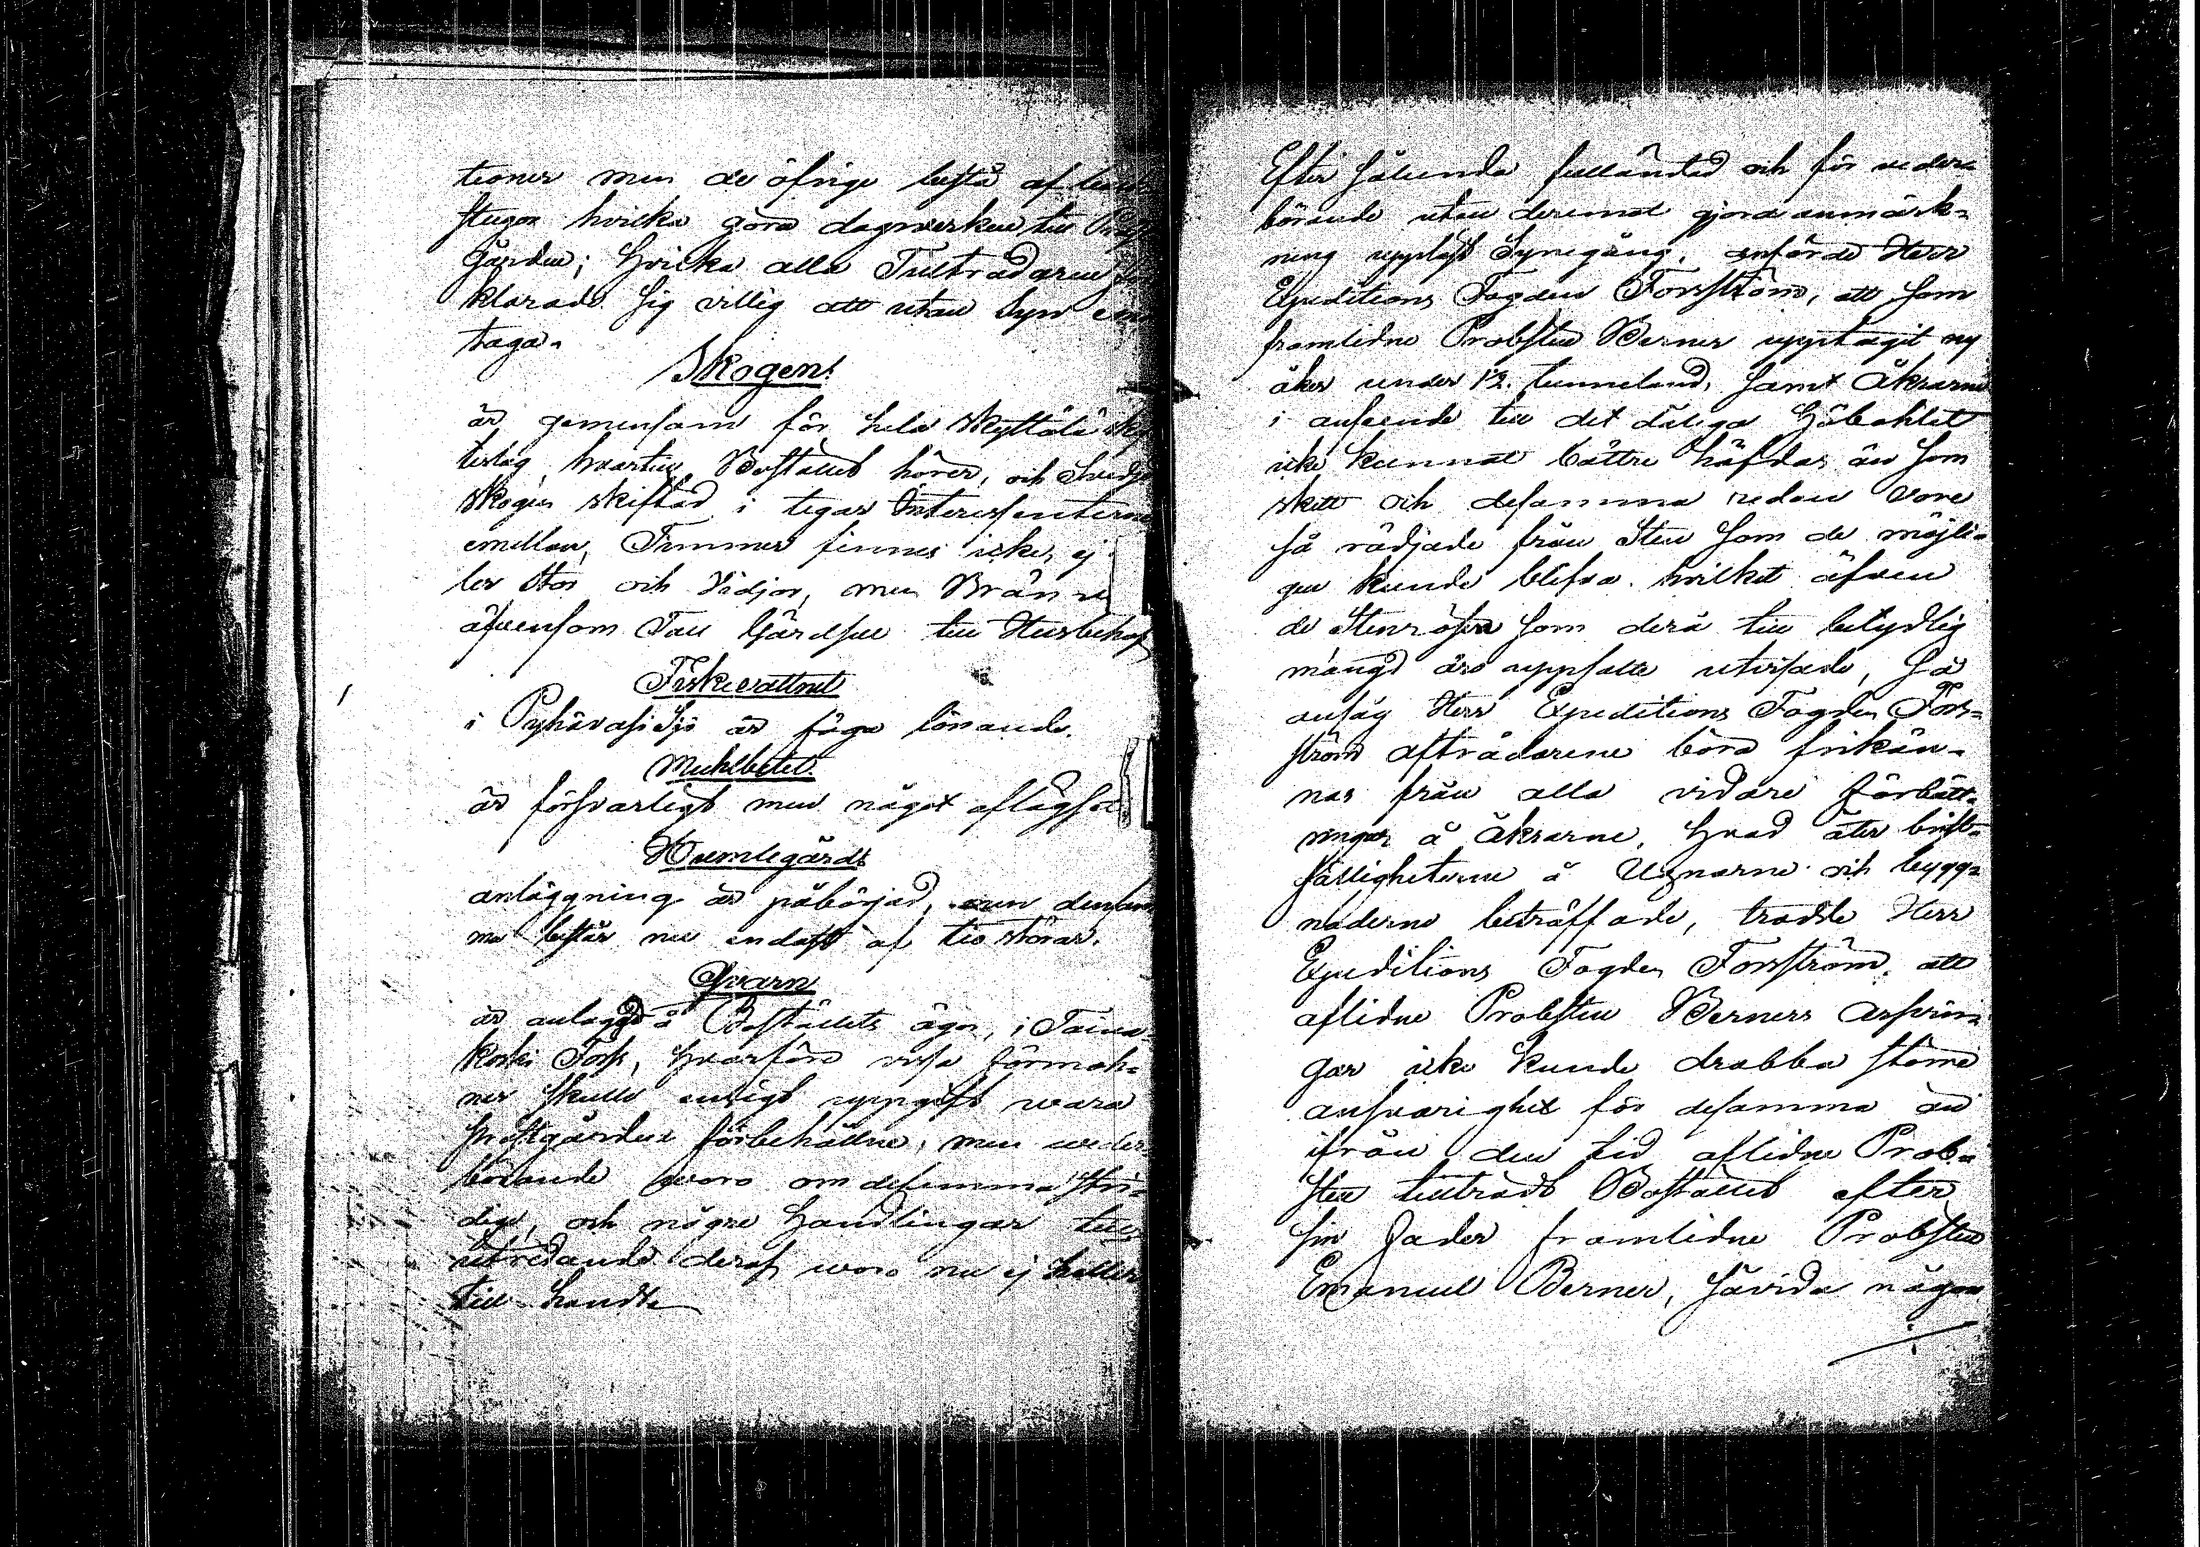 tioner men de öfrige bestå af
stugor hvilka göra dagsverken till
Gården; hvilka alla Tillträdaren
klarade sig villig att utan Syn
taga.
Skogen
är gemensam för hela Skyttälä
teslag hvartill Bostället hörer, och Svedje
skogen skiftad i tegar Interessenterne
emellan, Timmer finnes icke, ej
ler Stör och Vidjor, men Bränn
äfvensom Tall Gärdsel till Husbehof
Fiskevattnet
i Pyhäväsi Sjö är föga lönande.
Muhlbetet
är försvarligt men något
Humlegårds
anläggning är påbörjad, men densam
ma består nu endast af tio störar.
Qvarn
är anlagd å Boställets ägor, i Taina
koski Fors, hvarföre vissa förmoh-
ner skulle enligt uppgift wara
prestgården förbehållne, men weder
börande woro om desamma stri-
dige, och några Handlingar till
utredande deraf woro nu ej heller
till handa
Efter sålunda fulländad och för veder-
börande utan deremot gjord anmärk-
ning uppläst Synegång, anförde Herr
Expeditions Fogden Forsström, att som
framlidne Probsten Berner upptagit ny
åker under 12. tunneland, samt Åkrarne
i anseende till det dåliga Höbohlet
icke kunnat bättre häfdas än som
skett och desamma redan vore
så rödjade från Sten som de möjli-
gen kunde blifva. hvilket äfven
de Stenrösen som derå till betydlig
mängd äro uppsatte utvisade, så
ansåg Herr Expeditions Fogden Fors-
ström afträdarene böra frikän-
nas från alla vidare förbätt-
ringar å Åkrarne, hvad åter brist-
fälligheterne å Ugnarne och bygg-
naderne beträffade, trodde Herr
Expeditions Fogden Forsström, att
aflidne Probsten Berners Arfvin-
gar icke kunde drabba större
ansvarighet för desamma än
ifrån den tid aflidne Prob-
sten tillträdt Bostället efter
sin fader framlidne Probsten
Emanuel Berner, såvida någon